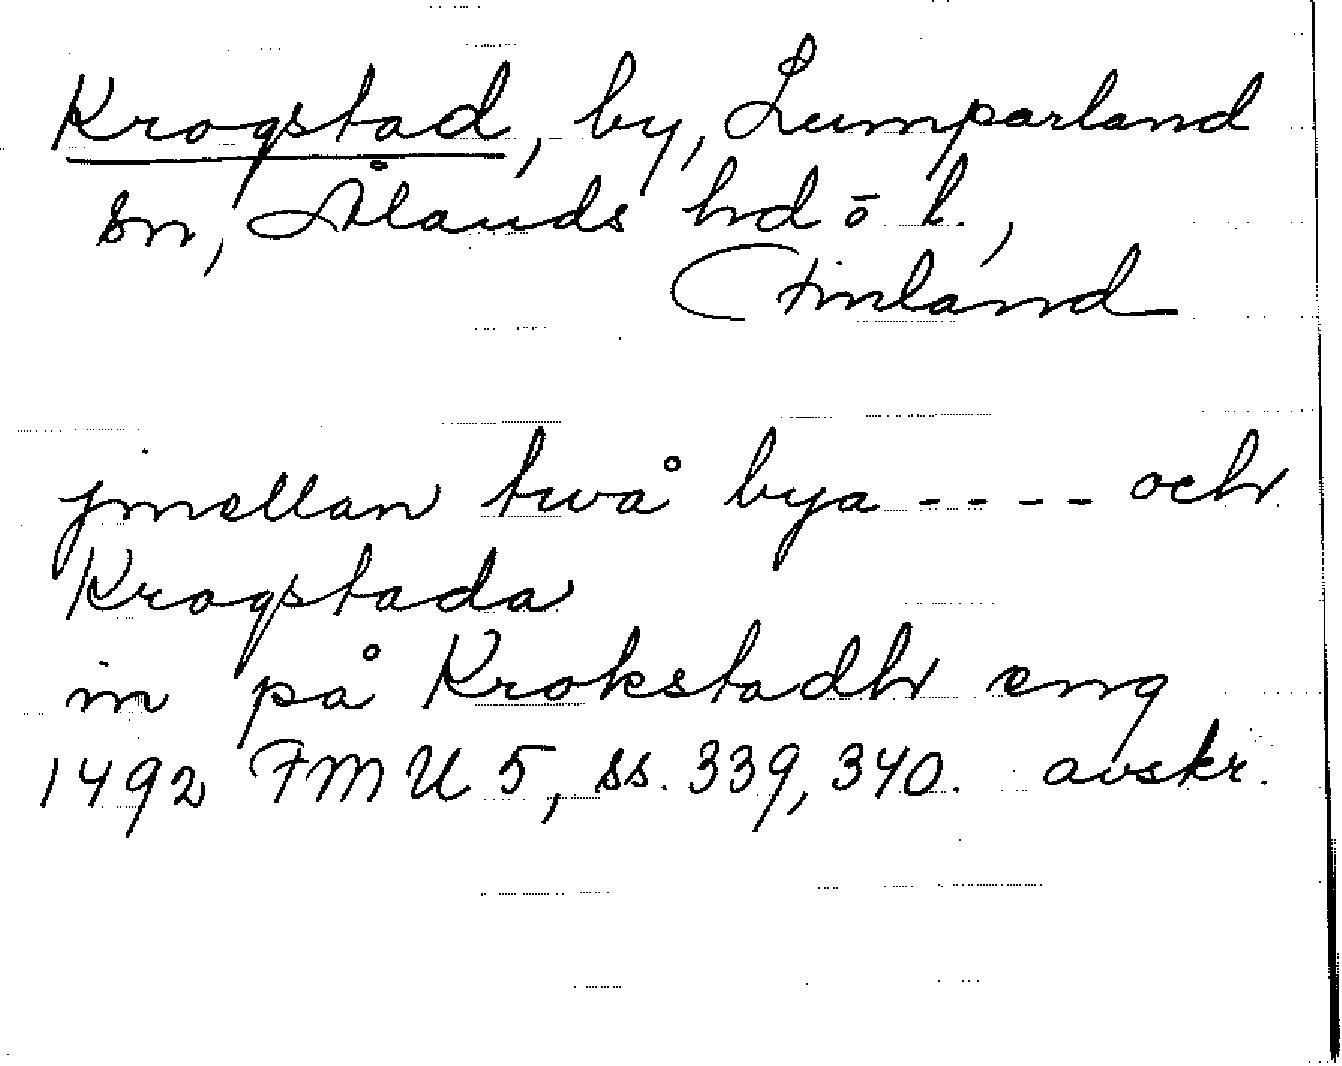 Krogstad, by, Lumparland
sn, Ålands hd ō l.,
Finland
jmellan twå bya ---- och
Krogstada
in på Krokstadh eng
1492 FMU 5, ss. 339, 340. avskr.